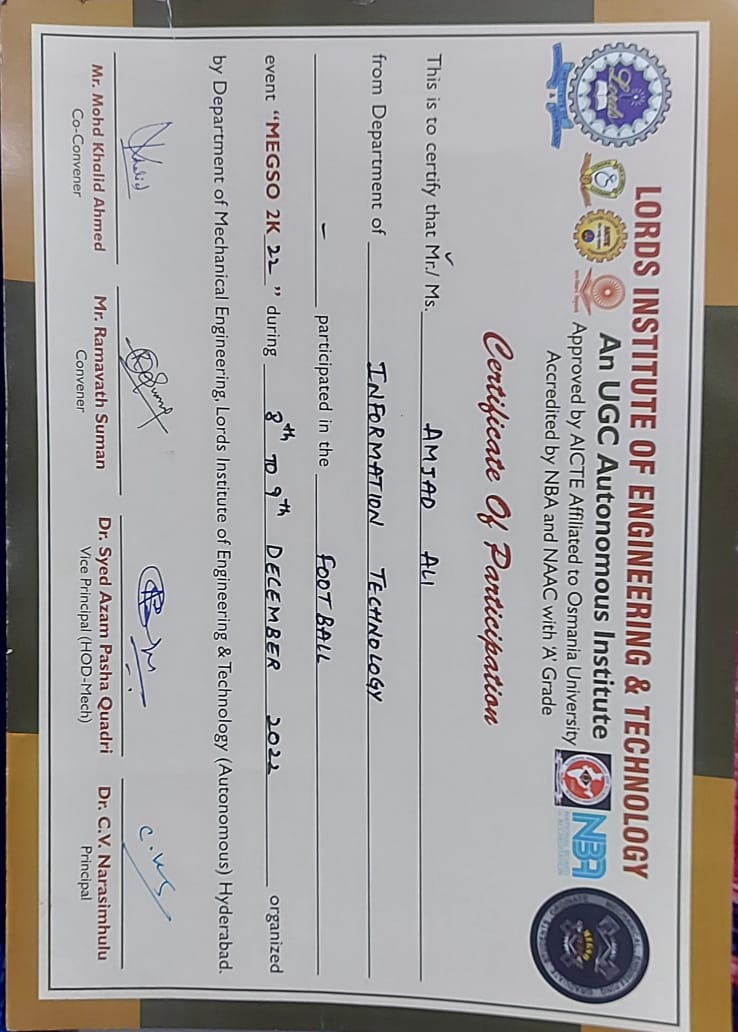 LORDS INSTITUTE OF ENGINEERING & TECHNOLOGY
An UGC Autonomous Institute
Approved by AICTE Affiliated to Osmania University
Accredited by NBA and NAAC with 'A' Grade
Lords
NBA
Certificate Of Participation
This is to certify that Mr./ Ms. AMJAD ALI
from Department of INFORMATION TECHNOLOGY
- participated in the FOOTBALL
event "MEGSO 2K 22" during 8th TO 9th DECEMBER 2022 organized
by Department of Mechanical Engineering, Lords Institute of Engineering & Technology (Autonomous) Hyderabad.
Khalid
C.V.S
Mr. Mohd Khalid Ahmed Mr. Ramavath Suman Dr. Syed Azam Pasha Quadri Dr. C.V. Narasimhulu
Co-Convener Convener Vice Principal (HOD-Mech) Principal